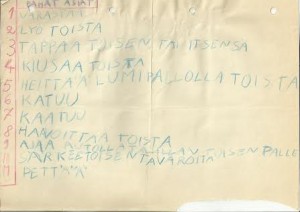 PAHAT ASIAT
1 VARASTAA
2 LYÖ TOISTA
3 TAPPAA TOISEN TAI ITSENSÄ
4 KIUSAA TOISTA
5 HEITTÄÄ LUMIPALLOLLA TOISTA
6 KATUU
7 KAATUU
8 HAAVOITTAA TOISTA
9 AJAA AUTOLLA
11 SÄRKEE TOISEN TAVAROITA
11 PETTÄÄ